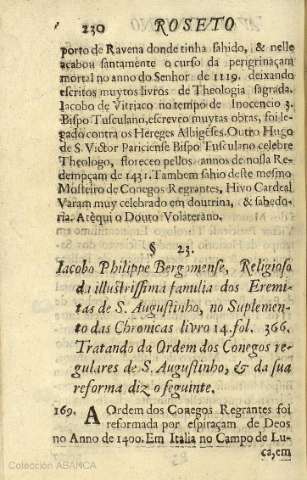 230 ROSETO
porto de Ravena donde tinha sahido, & nelle
acabou santamente o curso da peregrinaçam
mortal no anno do Senhor de 1119. deixando
escritos muytos livros de Theologia sagrada.
Iacobo de Vitriaco no tempo de Inocencio 3.
Bispo Tusculano, escreveo muytas obras, foi le-
gado contra os Hereges Albigēses. Outro Hugo
de S. Victor Pariciense Bispo Tusculano celebre
Theologo, floreceo pellos annos de nossa Re-
dempçam de 1431. Tambem sahio deste mesmo
Mosteiro de Conegos Regrantes, Hivo Cardeal
Varam muy celebrado em doutrina, & sabedo-
ria. Atèqui o Douto Volaterano.
§ 23.
Iacobo Philippe Bergomense, Religioso
da illustrissima familia dos Eremi-
tas de S. Augustinho, no Suplemen-
to das Chronicas livro 14. fol. 366.
Tratando da Ordem dos Conegos re-
gulares de S. Augustinho, & da sua
reforma diz o seguinte.
169. A Ordem dos Conegos Regrantes foi
reformada por espiraçam de Deos
no Anno de 1400. Em Italia no Campo de Lu-
ca, em
Colección ABANCA